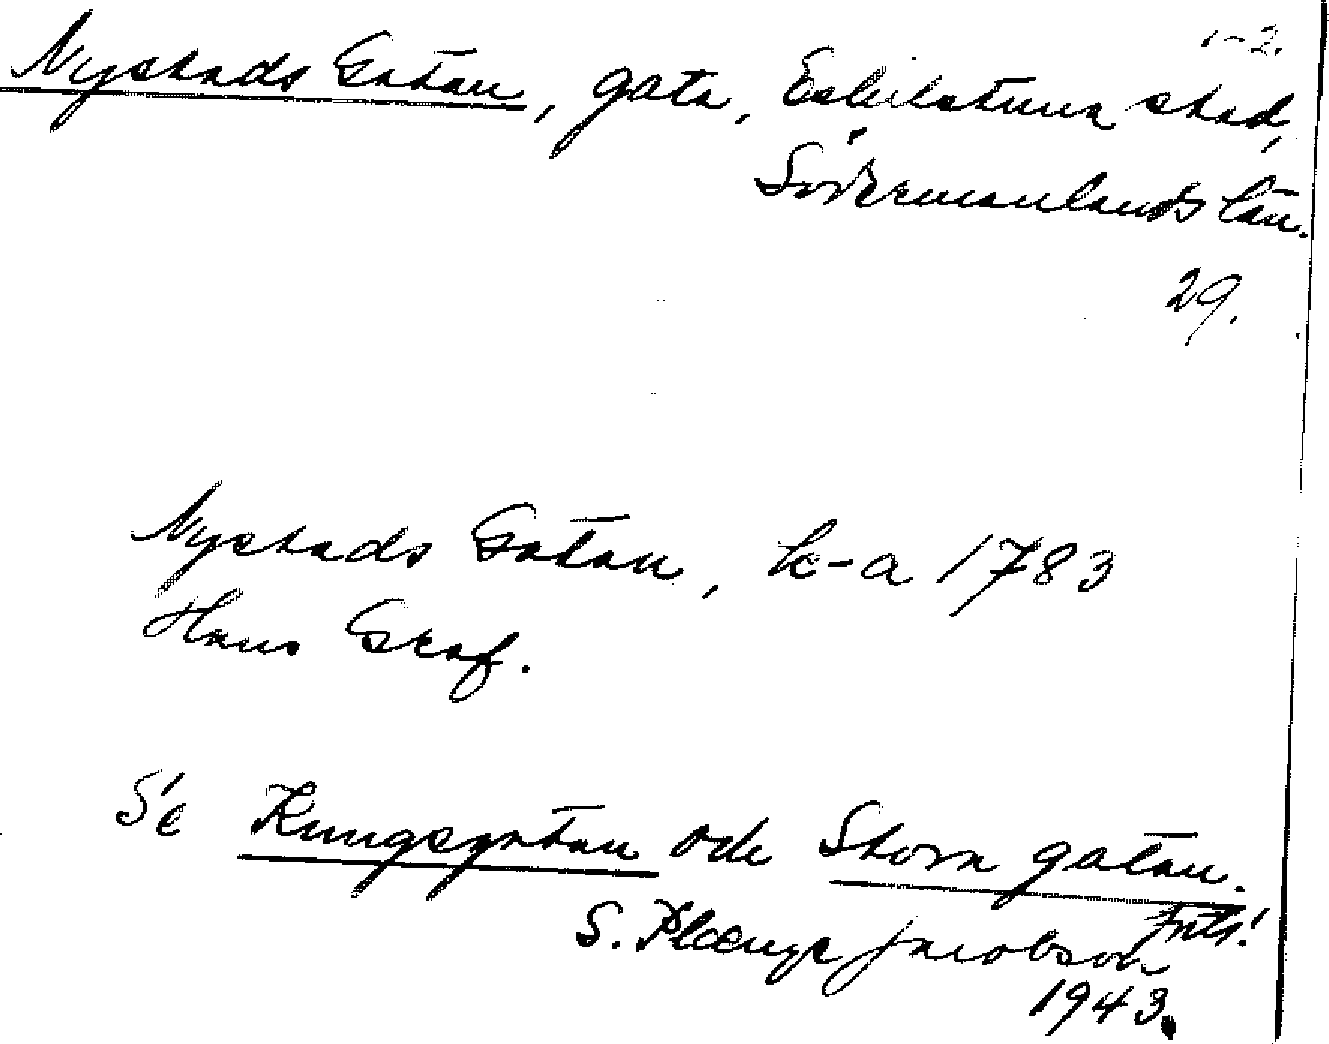 1-2.
Nystads Gatan, gata, Eskilstuna stad,
Södermanlands län.
29.
Nystads Gatan, k-a 1783
Hans Graf.
Se Kungsgatan och Stora gatan.
S. Plænge Jacobson
1943.